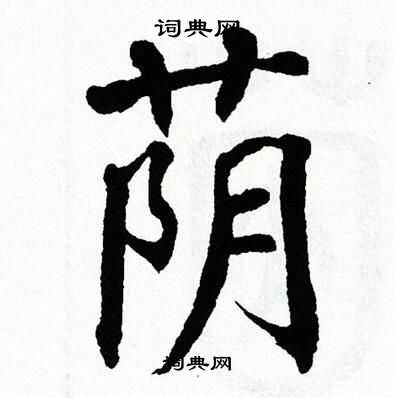 词典网
荫
词典网